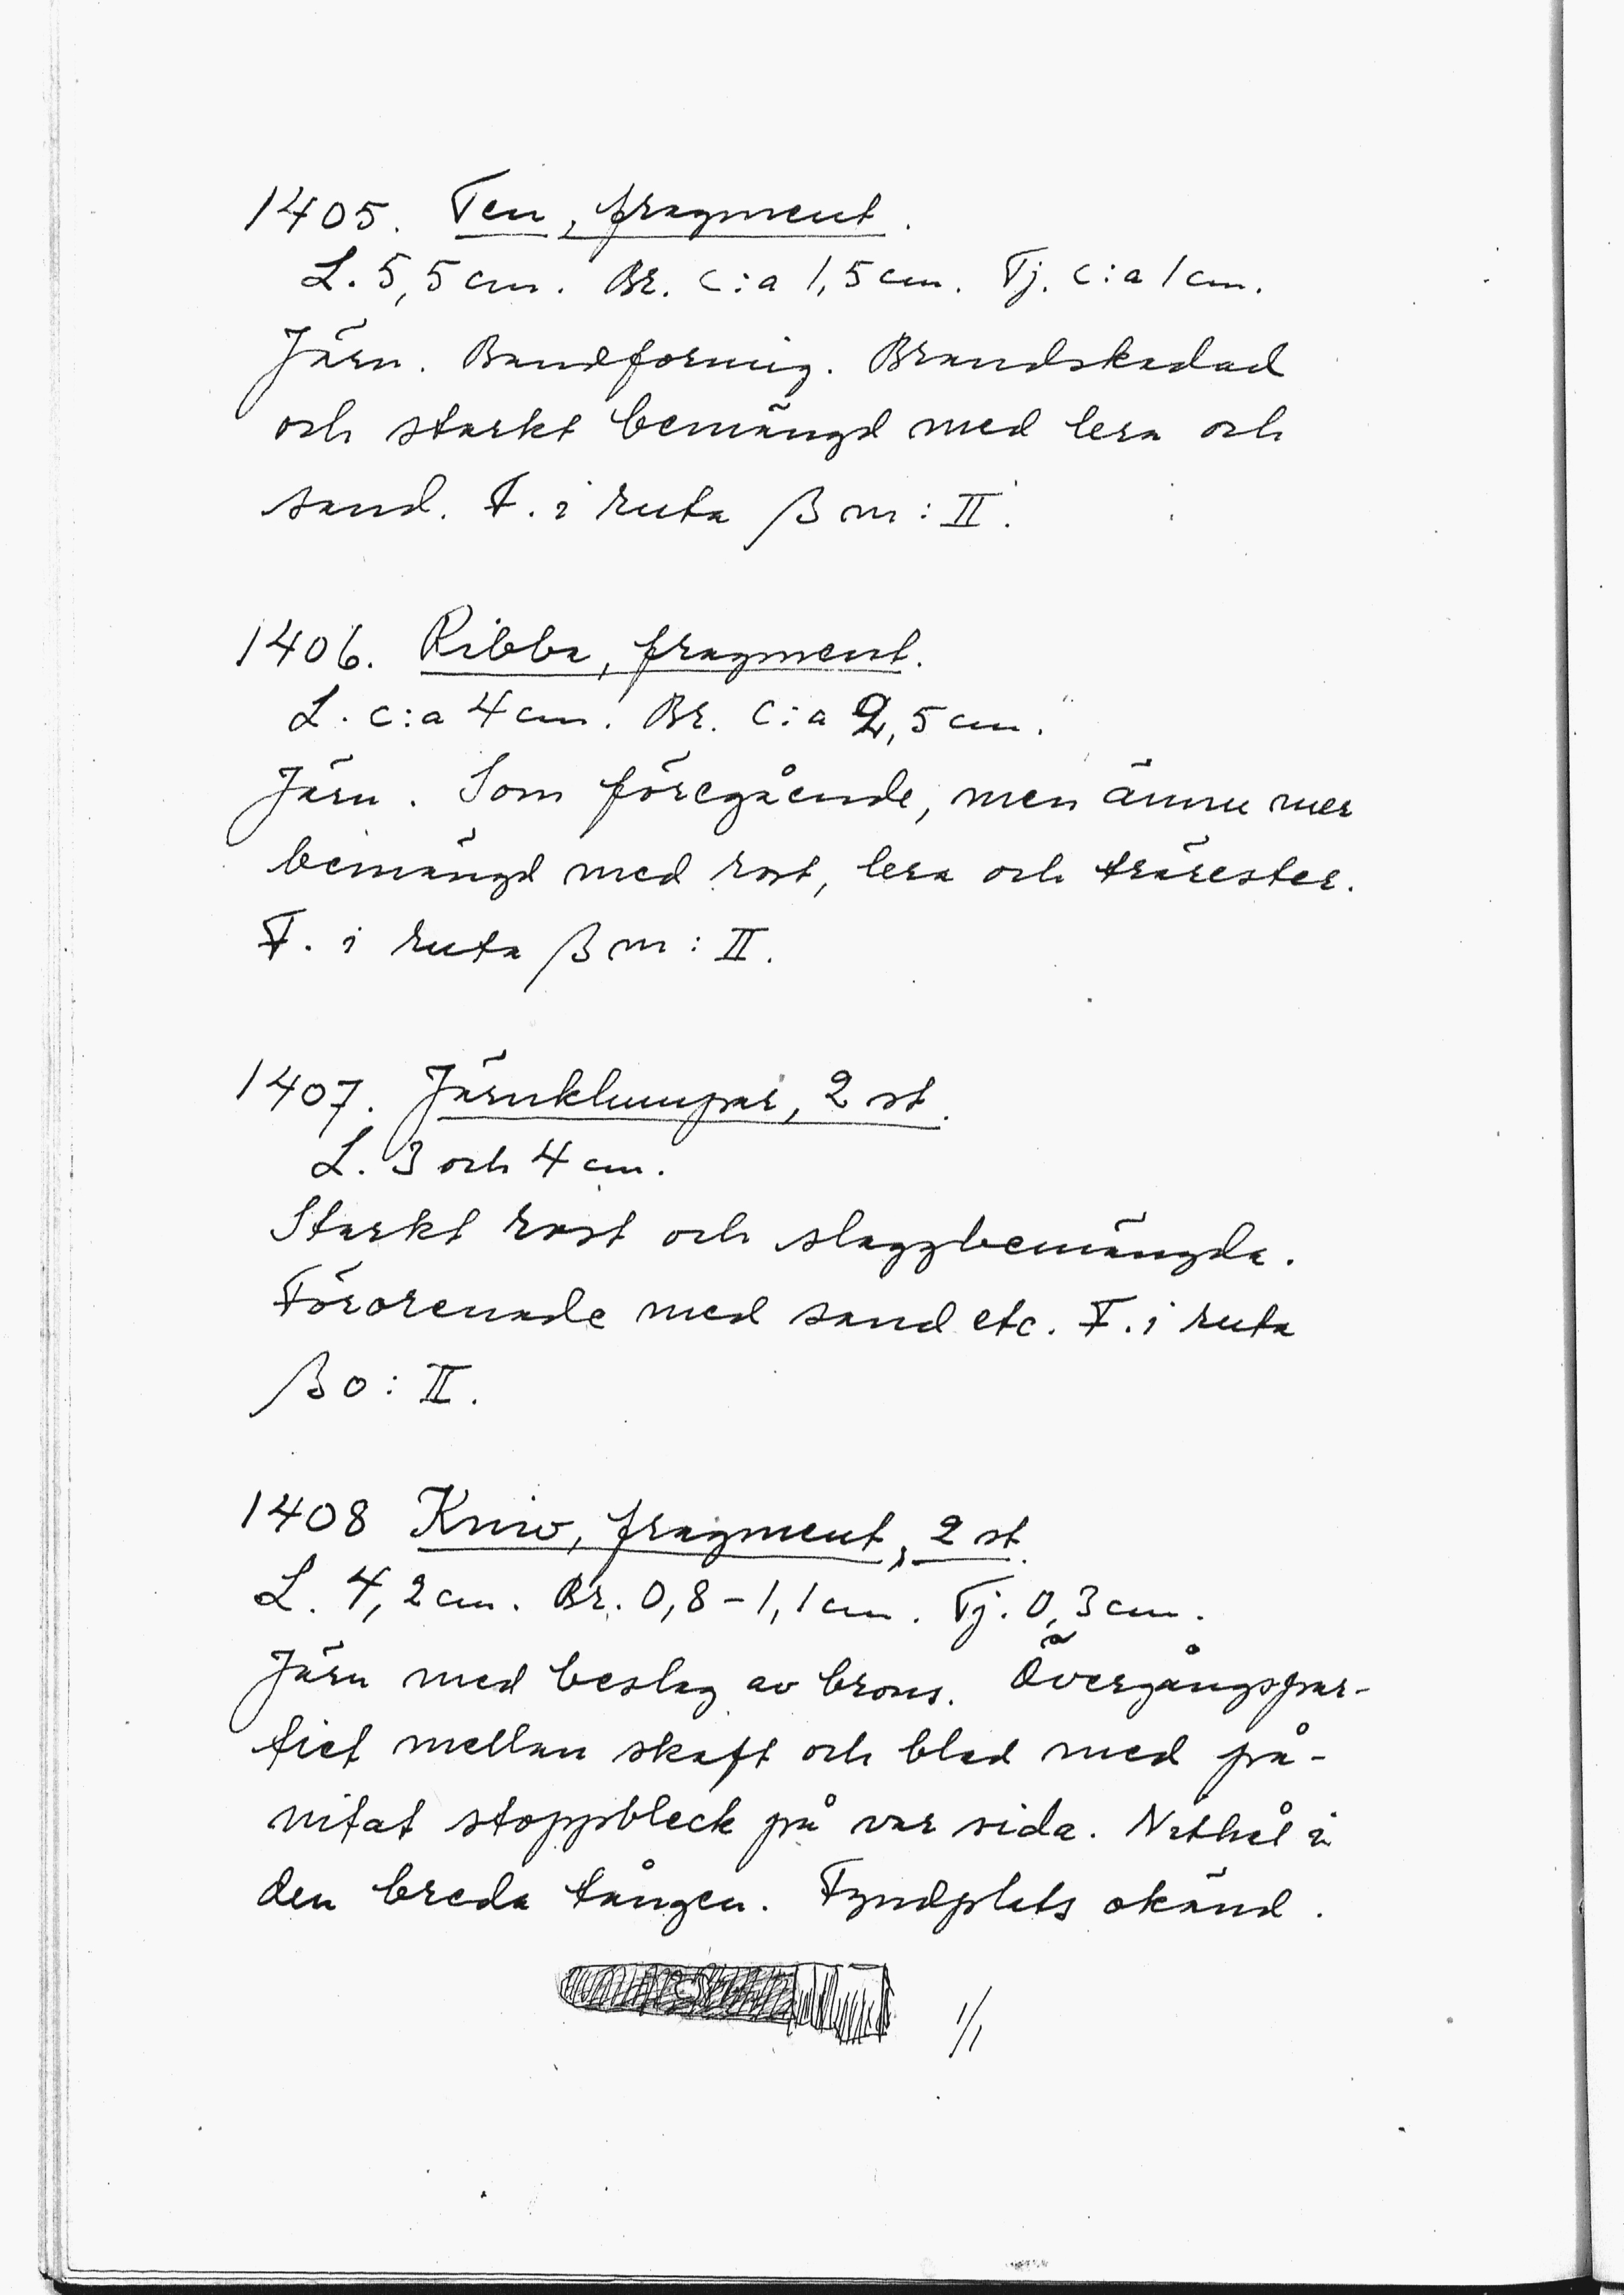 1405. Ten, fragment.
L. 5,5 cm. Br. c:a 1,5 cm. Tj. c:a 1 cm.
Järn. Bandformig. Brandskadad
och starkt bemängd med lera och
sand. F. i ruta βm: II.
1406. Ribba, fragment.
L. c:a 4 cm. Br. c:a 2,5 cm.
Järn. Som föregående, men ännu mer
bemängd med rost, lera och trärester.
F. i ruta βm: II.
1407. Järnklumpar, 2 st.
L. 3 och 4 cm.
Starkt rost och slaggbemängda.
Förorenade med sand etc. F. i ruta
βo: II.
1408 Kniv, fragment, 2 st.
L. 4,2 cm. Br. 0,8-1,1 cm. Tj. 0,3 cm.
Järn med beslag av brons. Övergångspar-
tiet mellan skaft och blad med på-
nitat stoppbleck på var sida. Nithål i
den breda tången. Fyndplats okänd.
1/1